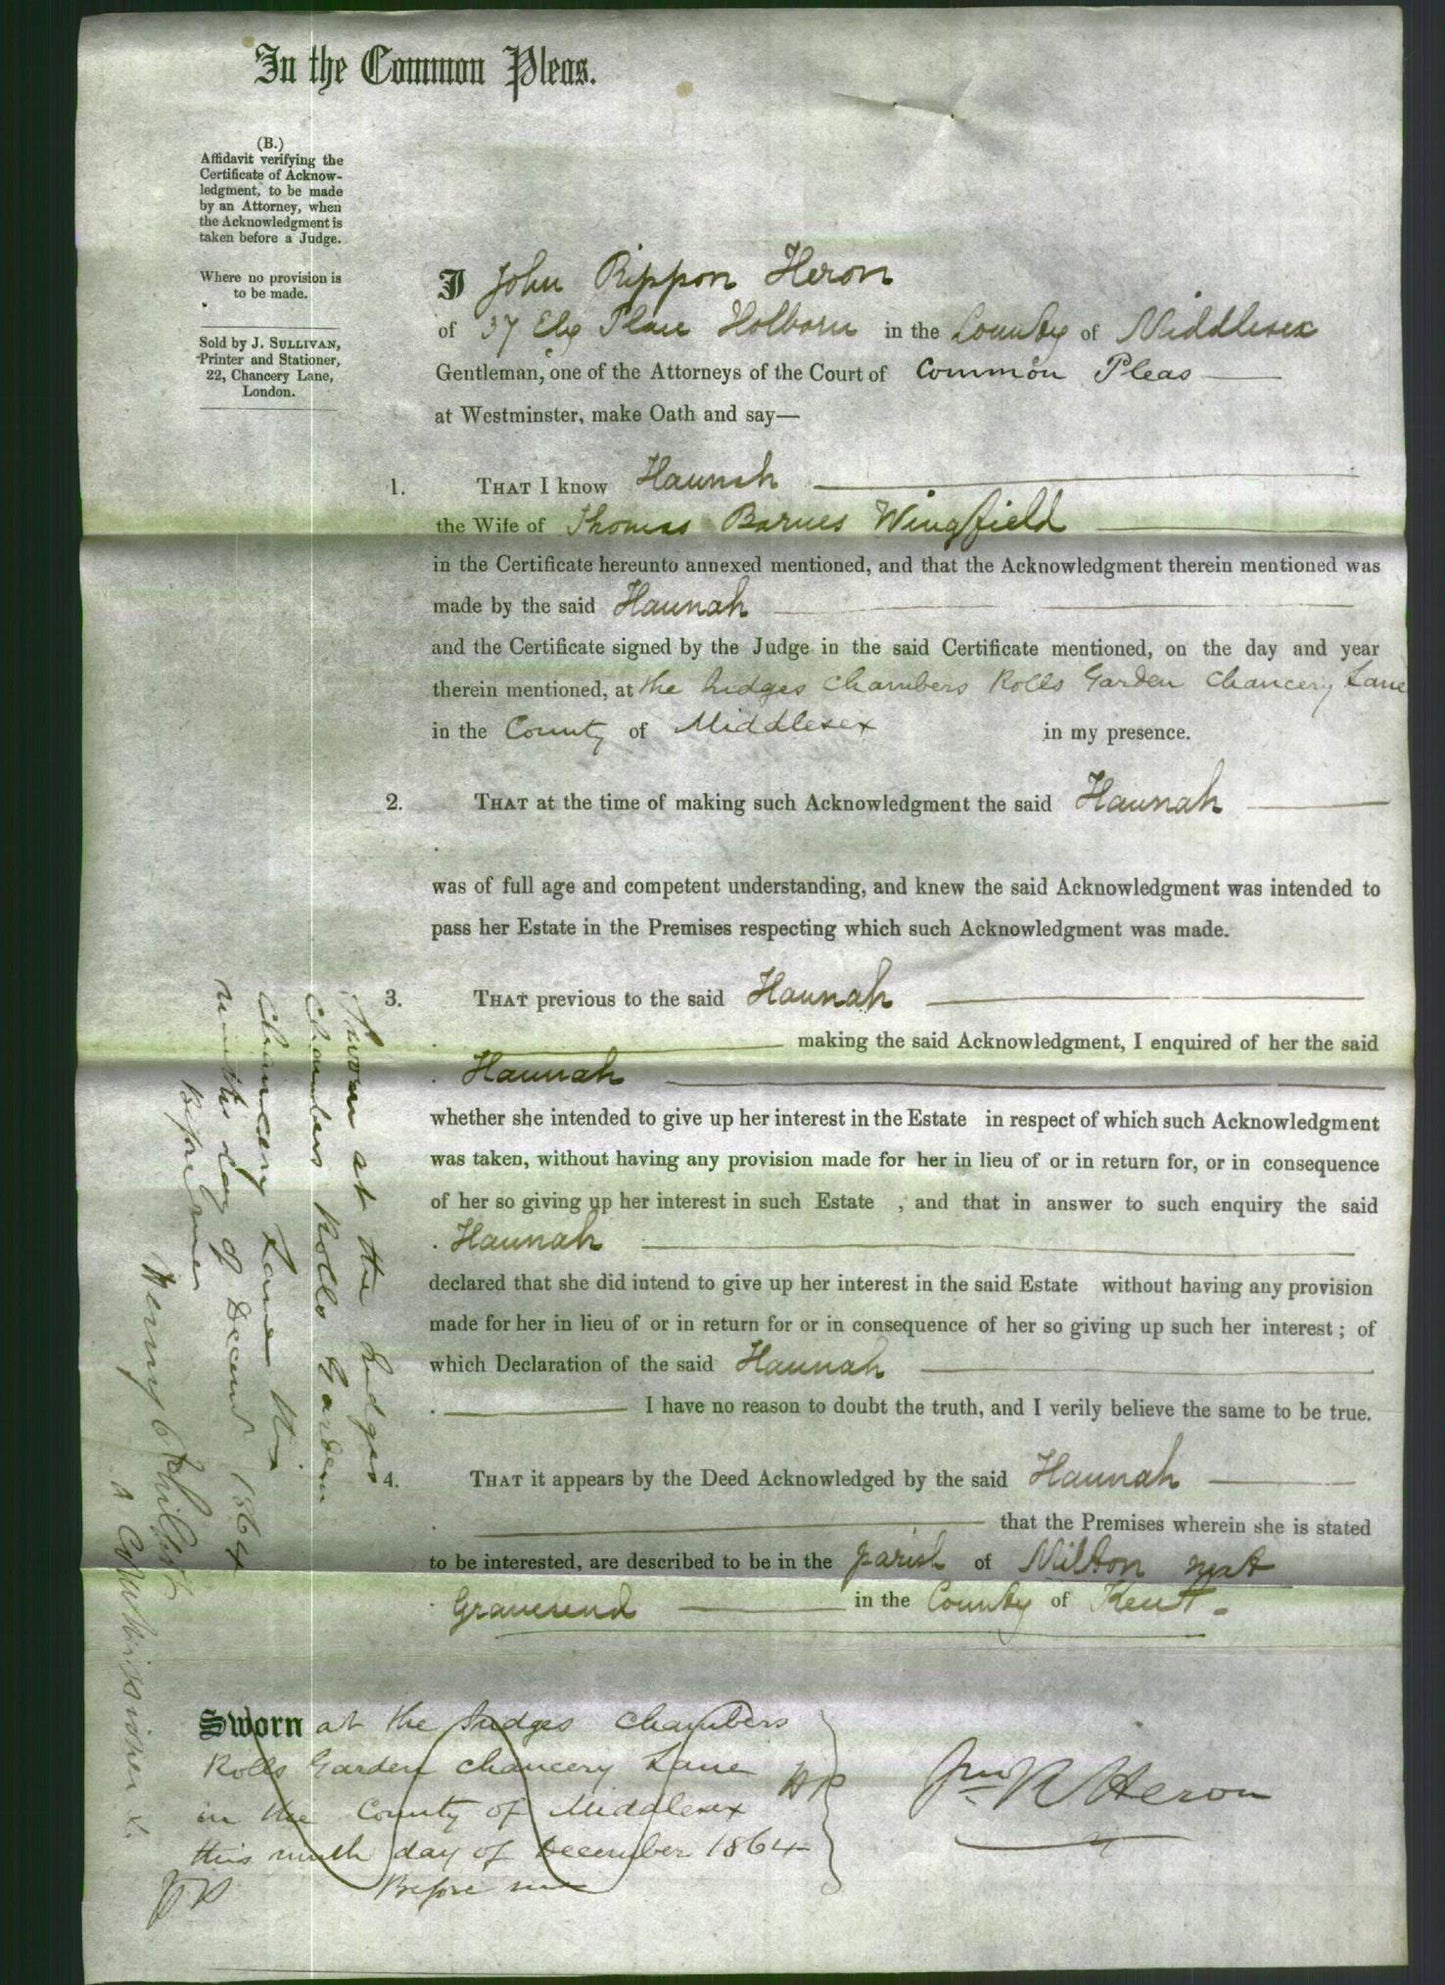 In the Common Pleas.
(B.)
Affidavit verifying the
Certificate of Acknow-
ledgment, to be made
by an Attorney, when
the Acknowledgment is
taken before a Judge.
Where no provision is
to be made.
Sold by J. SULLIVAN,
Printer and Stationer,
22, Chancery Lane,
London.
I John Rippon Heron
of 37 Ely Place Holborn in the County of Middlesex
Gentleman, one of the Attorneys of the Court of Common Pleas
at Westminster, make Oath and say—
1. THAT I know Hannah
the Wife of Thomas Barnes Wingfield
in the Certificate hereunto annexed mentioned, and that the Acknowledgment therein mentioned was
made by the said Hannah
and the Certificate signed by the Judge in the said Certificate mentioned, on the day and year
therein mentioned, at the Judges Chambers Rolls Garden Chancery Lane
in the County of Middlesex in my presence.
2. THAT at the time of making such Acknowledgment the said Hannah
was of full age and competent understanding, and knew the said Acknowledgment was intended to
pass her Estate in the Premises respecting which such Acknowledgment was made.
3. THAT previous to the said Hannah
making the said Acknowledgment, I enquired of her the said
Hannah
whether she intended to give up her interest in the Estate in respect of which such Acknowledgment
was taken, without having any provision made for her in lieu of or in return for, or in consequence
of her so giving up her interest in such Estate , and that in answer to such enquiry the said
Hannah
declared that she did intend to give up her interest in the said Estate without having any provision
made for her in lieu of or in return for or in consequence of her so giving up such her interest; of
which Declaration of the said Hannah
I have no reason to doubt the truth, and I verily believe the same to be true.
4. THAT it appears by the Deed Acknowledged by the said Hannah
that the Premises wherein she is stated
to be interested, are described to be in the parish of Milton next
Gravesend in the County of Kent.
Sworn at the Judges Chambers
Rolls Garden Chancery Lane
in the County of Middlesex
this ninth day of December 1864
Before me
Jno R Heron
Sworn at the Judges
Chambers Rolls Garden
Chancery Lane this
ninth day of Decemr 1864
Before me
Henry
A Commissioner &c.